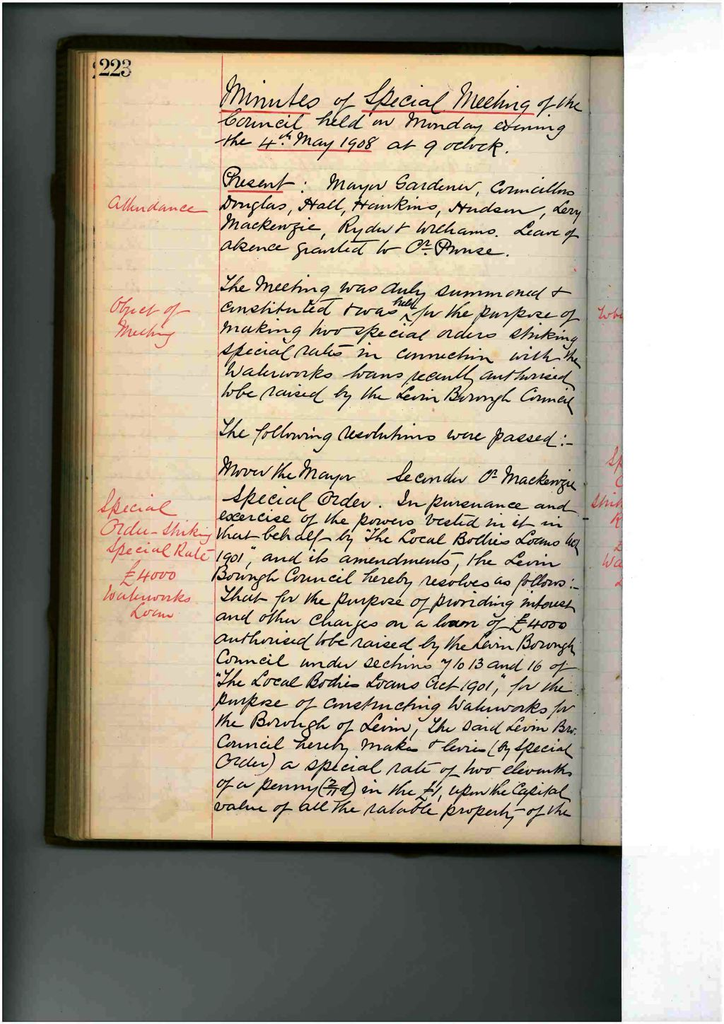 223
Minutes of Special Meeting of the
Council held on Monday evening
the 4th May 1908 at 9 oclock.
Attendance
Present: Mayor Gardener, Councillors
Douglas, Hall, Hankins, Hudson, Levy
Mackenzie, Ryder & Williams. Leave of
absence granted to Cr. Prouse.
Object of
Meeting
The Meeting was duly summoned &
constituted & was held for the purpose of
making two special orders striking
special rates in connection with the
Waterworks loans recently authorised
to be raised by the Levin Borough Council
The following resolutions were passed:-
Special
Order striking
Special Rate
£4000
Waterworks
Loan
Mover the Mayor Seconder Cr Mackenzie
Special Order. In pursuance and
exercise of the powers vested in it in
that behalf by "The Local Bodies Loans Act
1901", and its amendments, the Levin
Borough Council hereby resolves as follows:-
That for the purpose of providing interest
and other charges on a loan of £4000
authorised to be raised by the Levin Borough
Council under sections 7 to 13 and 16 of
"The Local Bodies Loans Act 1901", for the
purpose of constructing Waterworks for
the Borough of Levin, The said Levin Bro.
Council hereby makes & levies (by Special
Order) a special rate of two elevenths
of a penny (2/11 d) in the £1, upon the Capital
value of all the ratable property of the